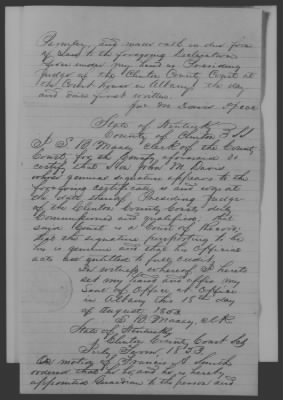 Permley, and made oath in due form
of Law to the foregoing Declaration
Given under my hand as Presiding
Judge of the Clinton County Court at
the Court house in Albany the day
and date first written.
Jno M Davis
State of Kentucky
County of Clinton
I S. B. Maxey Clerk of the County
Court for the County aforesaid do
certify that John M. Davis
whose genuine signature appears to the
foregoing certificate is and was at
the date thereof Presiding Judge
of the Clinton County Court duly
Commissioned and qualified; that
said Court is a Court of Record;
that the signature purporting to be
his is genuine and that his Official
acts are entitled to full credit
In witness whereof I hereto
set my hand and affix my
Seal of Office at Office
in Albany this 18th day
of August 1853
S. B. Maxey, Clk
State of Kentucky
Clinton County Court
July Term, 1853.
On motion of Francis A Smith
ordered that he be, and he is hereby
appointed Guardian to the person and